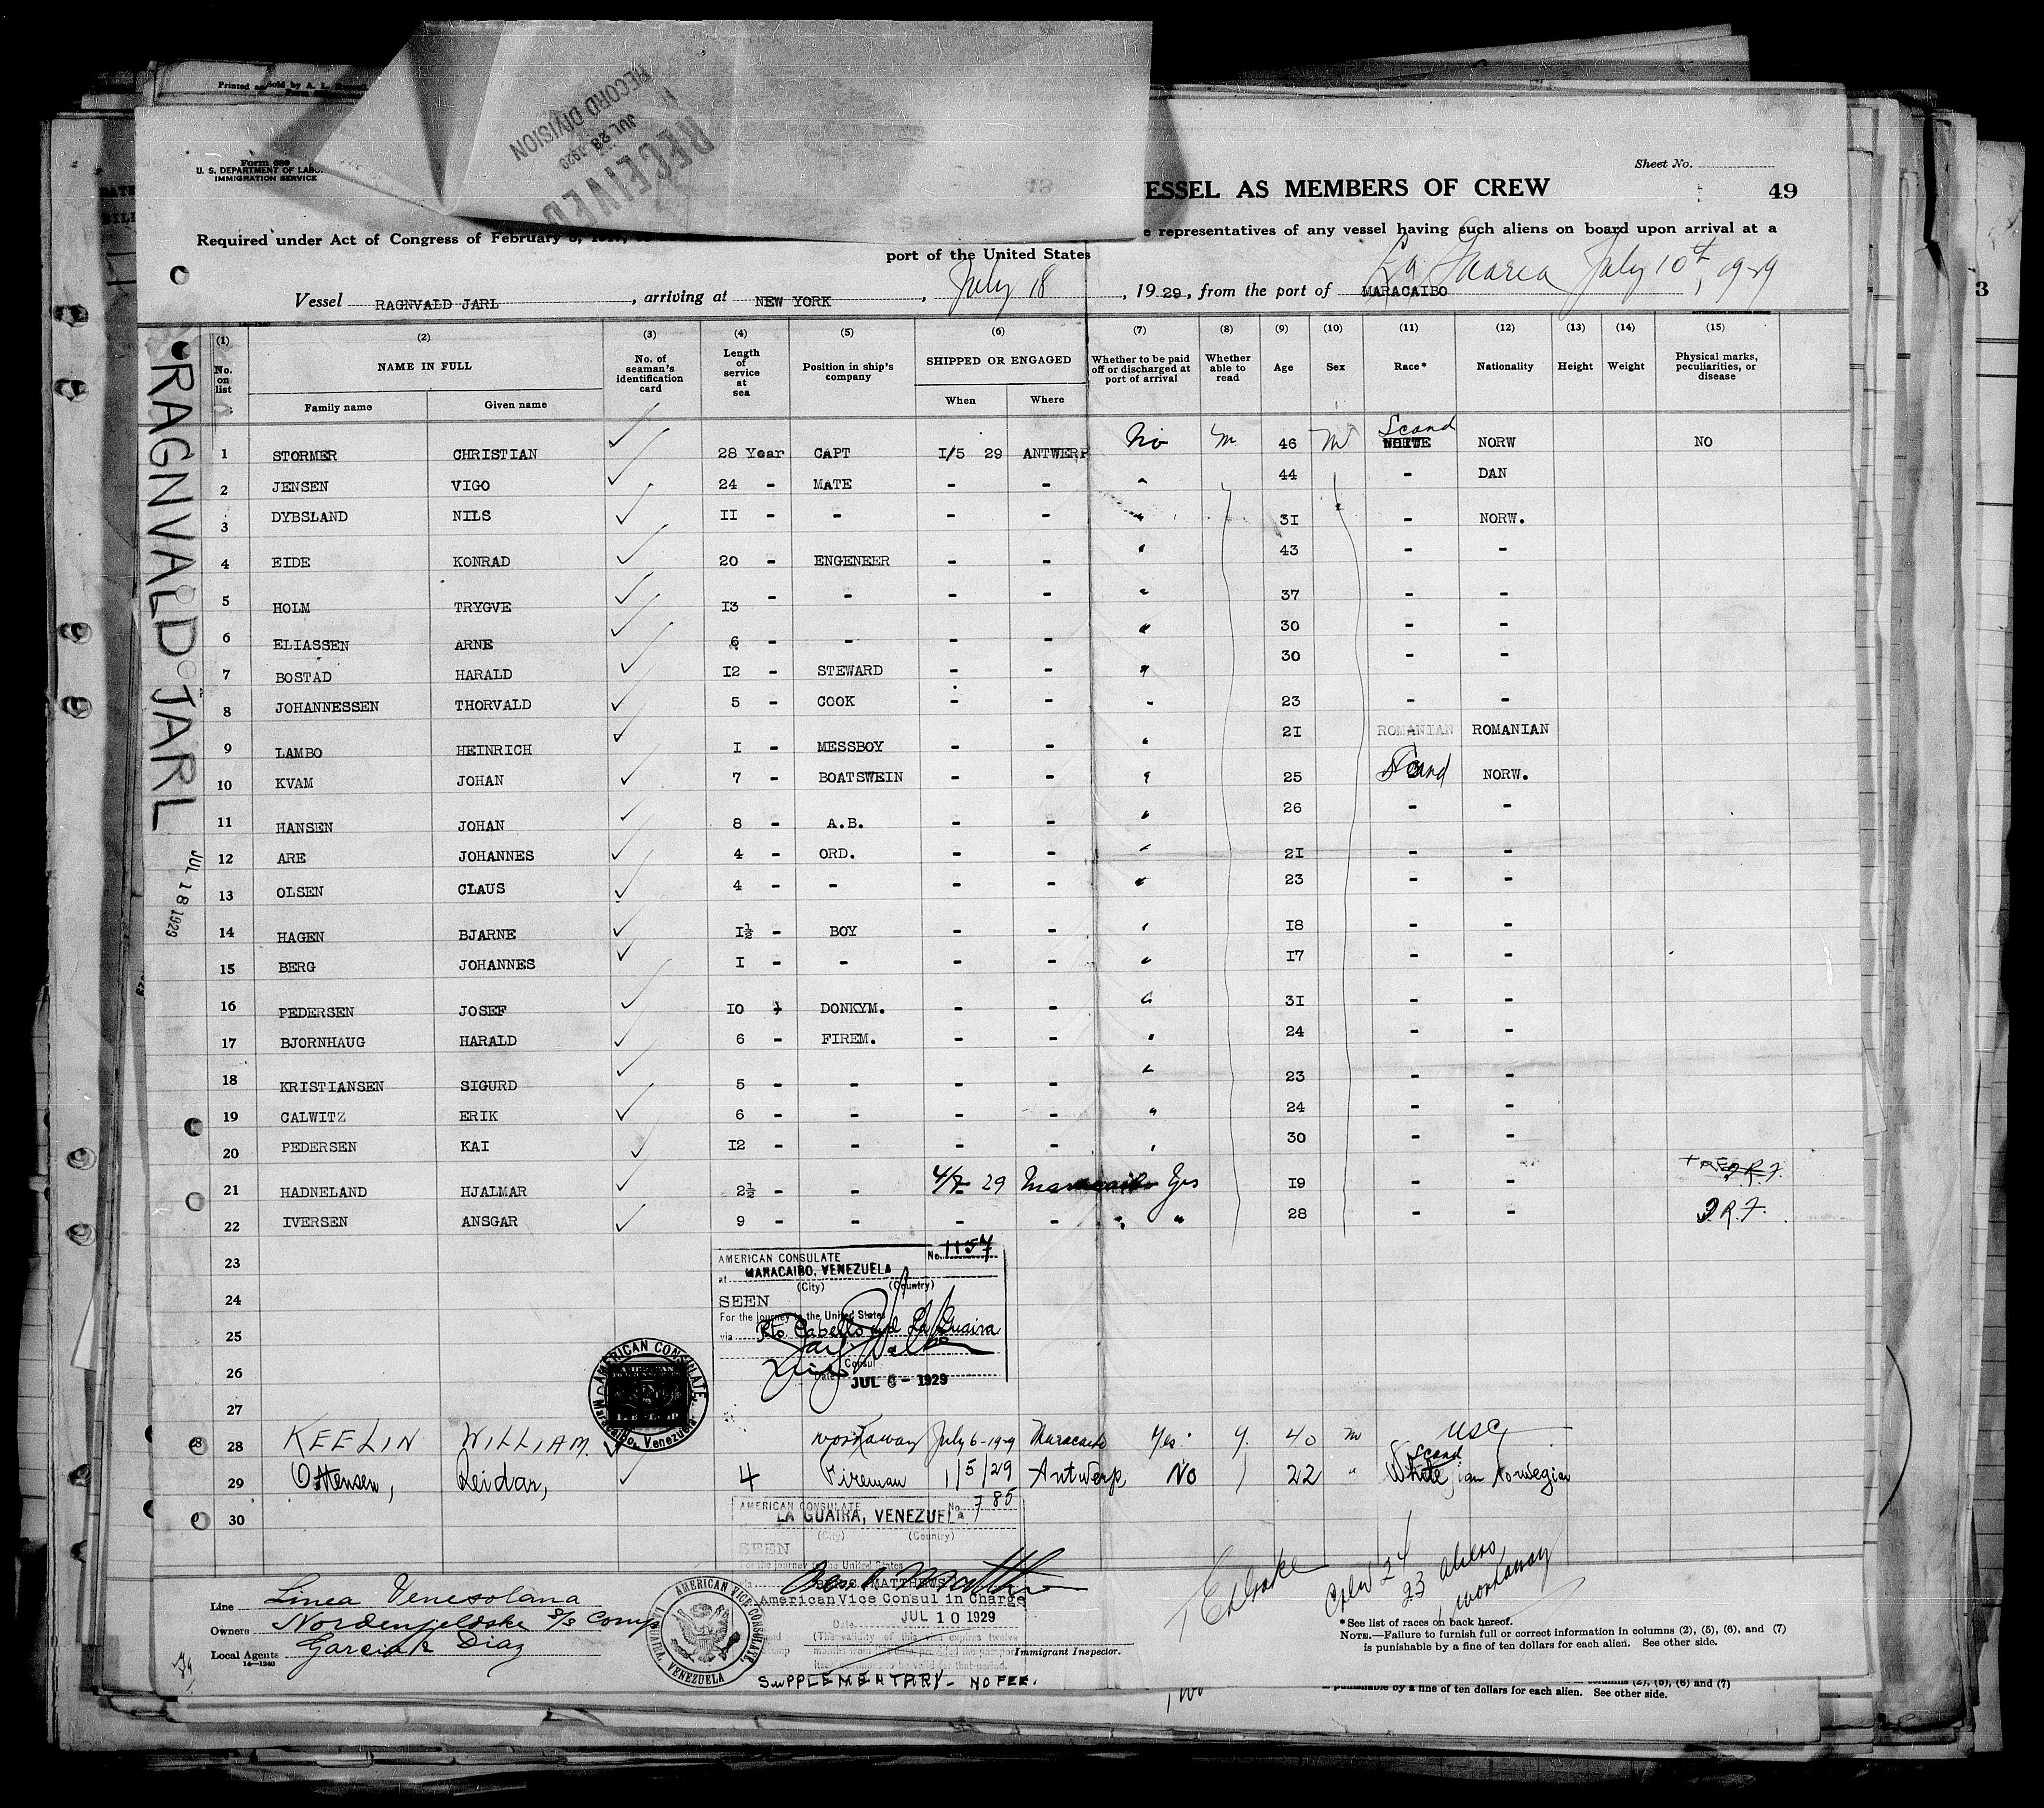 Printed and Sold by A. L.
RECEIVED
JUL 28 1929
RECORD DIVISION
Form 680
U. S. DEPARTMENT OF LABOR
IMMIGRATION SERVICE
Sheet No.
ESSEL AS MEMBERS OF CREW
49
Required under Act of Congress of February 5, 1917,
e representatives of any vessel having such aliens on board upon arrival at a
port of the United States
La Guaira July 10th, 1929
Vessel RAGNVALD JARL, arriving at NEW YORK, July 18, 1929, from the port of MARACAIBO
14-1240
(1) (2) (3) (4) (5) (6) (7) (8) (9) (10) (11) (12) (13) (14) (15)
No. on list
NAME IN FULL
Family name
Given name
No. of seaman's identification card
Length of service at sea
Position in ship's company
SHIPPED OR ENGAGED
When
Where
Whether to be paid off or discharged at port of arrival
Whether able to read
Age
Sex
Race*
Nationality
Height
Weight
Physical marks, peculiarities, or disease
1 STORMER CHRISTIAN 28 Year CAPT I/5 29 ANTWERP No 46 M Scand NORW NO
2 JENSEN VIGO 24 - MATE - - " 44 - DAN
3 DYBSLAND NILS II - - - - " 3I - NORW.
4 EIDE KONRAD 20 - ENGENEER - - " 43 - -
5 HOLM TRYGVE I3 - - - - " 37 - -
6 ELIASSEN ARNE 6 - - - " 30 - -
7 BOSTAD HARALD I2 - STEWARD - - " 30 - -
8 JOHANNESSEN THORVALD 5 - COOK - - " 23 - -
9 LAMBO HEINRICH I - MESSBOY - - " 2I ROMANIAN ROMANIAN
10 KVAM JOHAN 7 - BOATSWEIN - - " 25 Scand NORW.
11 HANSEN JOHAN 8 - A.B. - - " 26 - -
12 ARE JOHANNES 4 - ORD. - - " 2I - -
13 OLSEN CLAUS 4 - - - - " 23 - -
14 HAGEN BJARNE I½ - BOY - - " I8 - -
15 BERG JOHANNES I - - - - " I7 - -
16 PEDERSEN JOSEF IO - DONKYM. - - " 3I - -
17 BJORNHAUG HARALD 6 - FIREM. - - " 24 - -
18 KRISTIANSEN SIGURD 5 - - - - " 23 - -
19 CALWITZ ERIK 6 - - - - " 24 - -
20 PEDERSEN KAI I2 - - - - " 30 - -
21 HADNELAND HJALMAR 2½ - - 4/7 29 Maracaibo Yes I9 - -
22 IVERSEN ANSGAR 9 - - - - " 28 - - R.F.
23
24
25
26
27
28 KEELIN WILLIAM workaway July 6-1929 Maracaibo Yes Y. 40 m USC
29 Ottensen, Reidar, 4 Fireman 1/5/29 Antwerp, No 22 " Scand Norwegian
30
RAGNVALD JARL
JUL 18 1929
AMERICAN CONSULATE No. 1157
at MARACAIBO, VENEZUELA
(City) (Country)
SEEN
For the journey to the United States
via Pto Cabello and La Guaira
Consul
Date JUL 6 - 1929
AMERICAN CONSULATE
Maracaibo, Venezuela
AMERICAN CONSULATE No. 785
LA GUAIRA, VENEZUELA
(City) (Country)
SEEN
For the journey to the United States
BEN C. MATTHEWS
American Vice Consul in Charge
Date JUL 10 1929
(The validity of this visa expires twelve
SUPPLEMENTARY - NO FEE.
AMERICAN VICE CONSULATE
LA GUAIRA, VENEZUELA
Line Linea Venesolana
Owners Nordenfjeldske S/S Comp
Local Agents Garcia & Diaz
14-1240
Immigrant Inspector.
Crew 24
23 aliens
1 workaway
*See list of races on back hereof.
NOTE.—Failure to furnish full or correct information in columns (2), (5), (6), and (7)
is punishable by a fine of ten dollars for each alien. See other side.
(2), (5), (6) and (7)
is punishable by a fine of ten dollars for each alien. See other side.
3